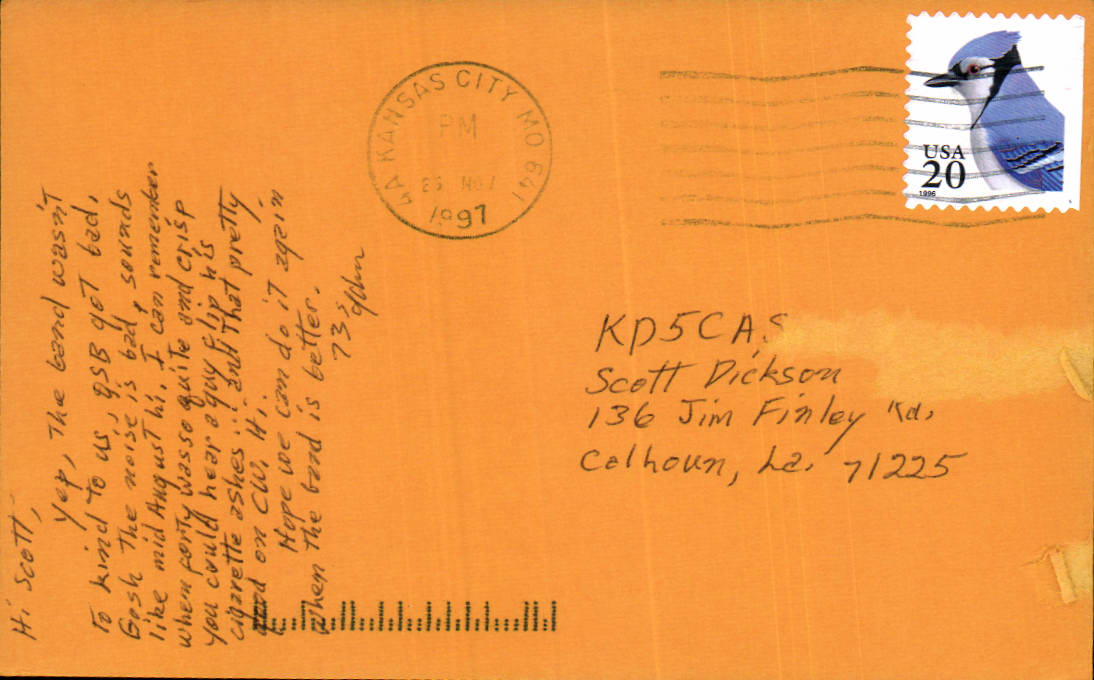 KANSAS CITY MO 641
PM
1997
USA
20
1996
KD5CAS
Scott Dickson
136 Jim Finley Rd.
Calhoun, La. 71225
Hi Scott,
Yep, The band wasn't
To kind To us, QSB got bad,
Gosh The noise is bad, sounds
like mid August hi. I can remember
when forty was so quite and crisp
you could hear a guy flip his
cigarette ashes!! and That pretty
good on CW, Hi.
Hope we can do it again
when The band is better.
73s